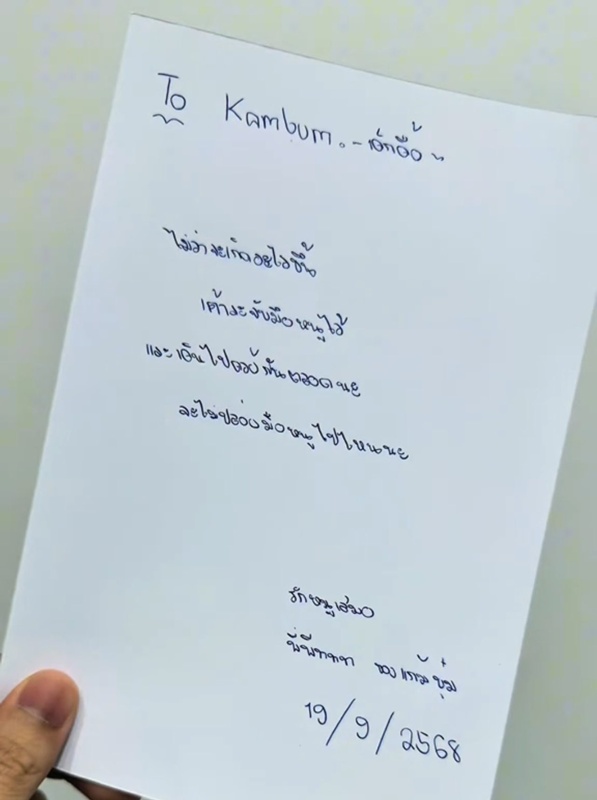 To Kambum. - เด้กอ้อ ~
ไม่ว่าจะเกิดอะไรขึ้น
เค้าจะจับมือหนูไว้
และเดินไปด้วยกันตลอดนะ
จะไม่ปล่อยมือหนูไปไหนนะ
รักหนูเสมอ
ของ แก้มบุ๋ม
19/9/2568